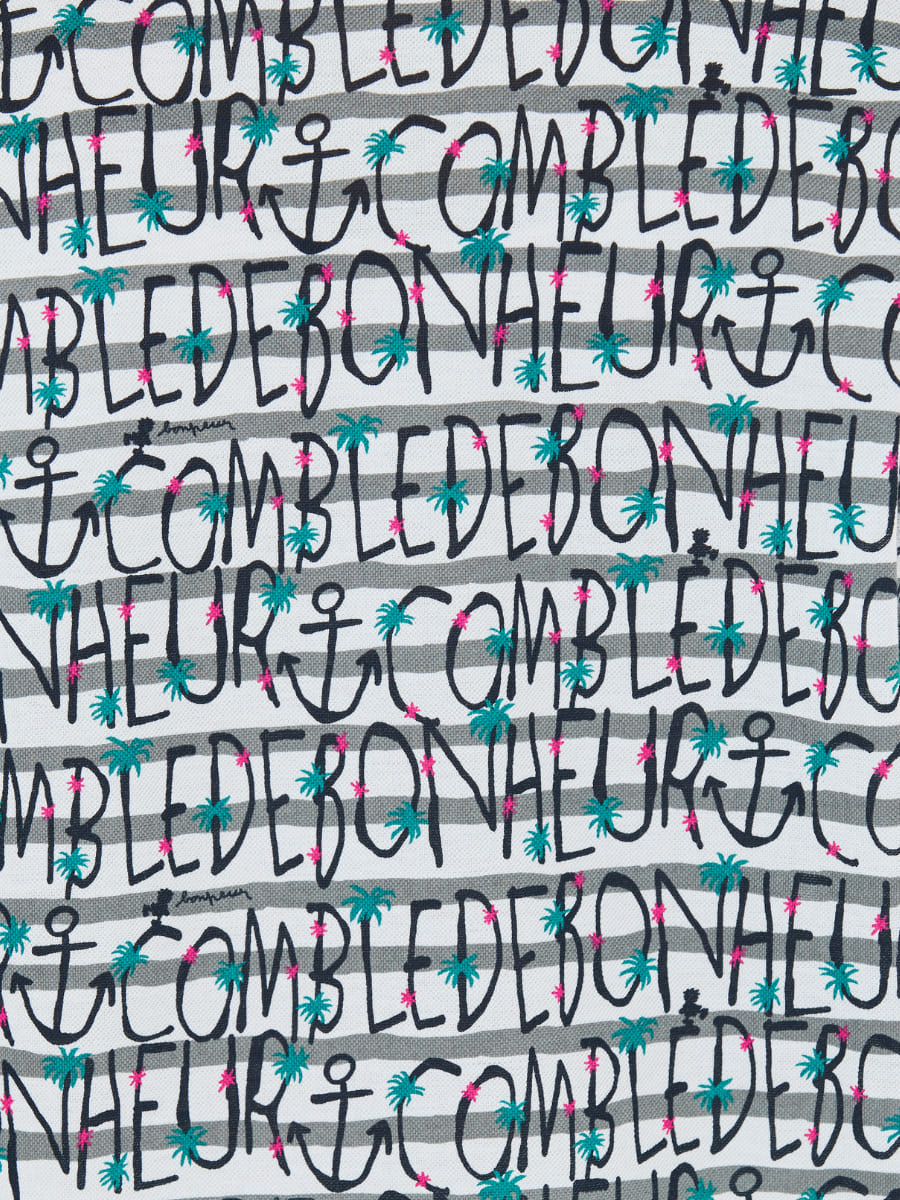 COMBLEDEBONHEU
NHEUR COMBLEDEBO
MBLEDEBONHEUR CO
bonheur
COMBLEDEBONHEU
NHEUR COMBLEDEBO
OMBLEDEBONHEUR CO
bonheur
COMBLEDEBONHEU
NHEUR COMBLEDEBON